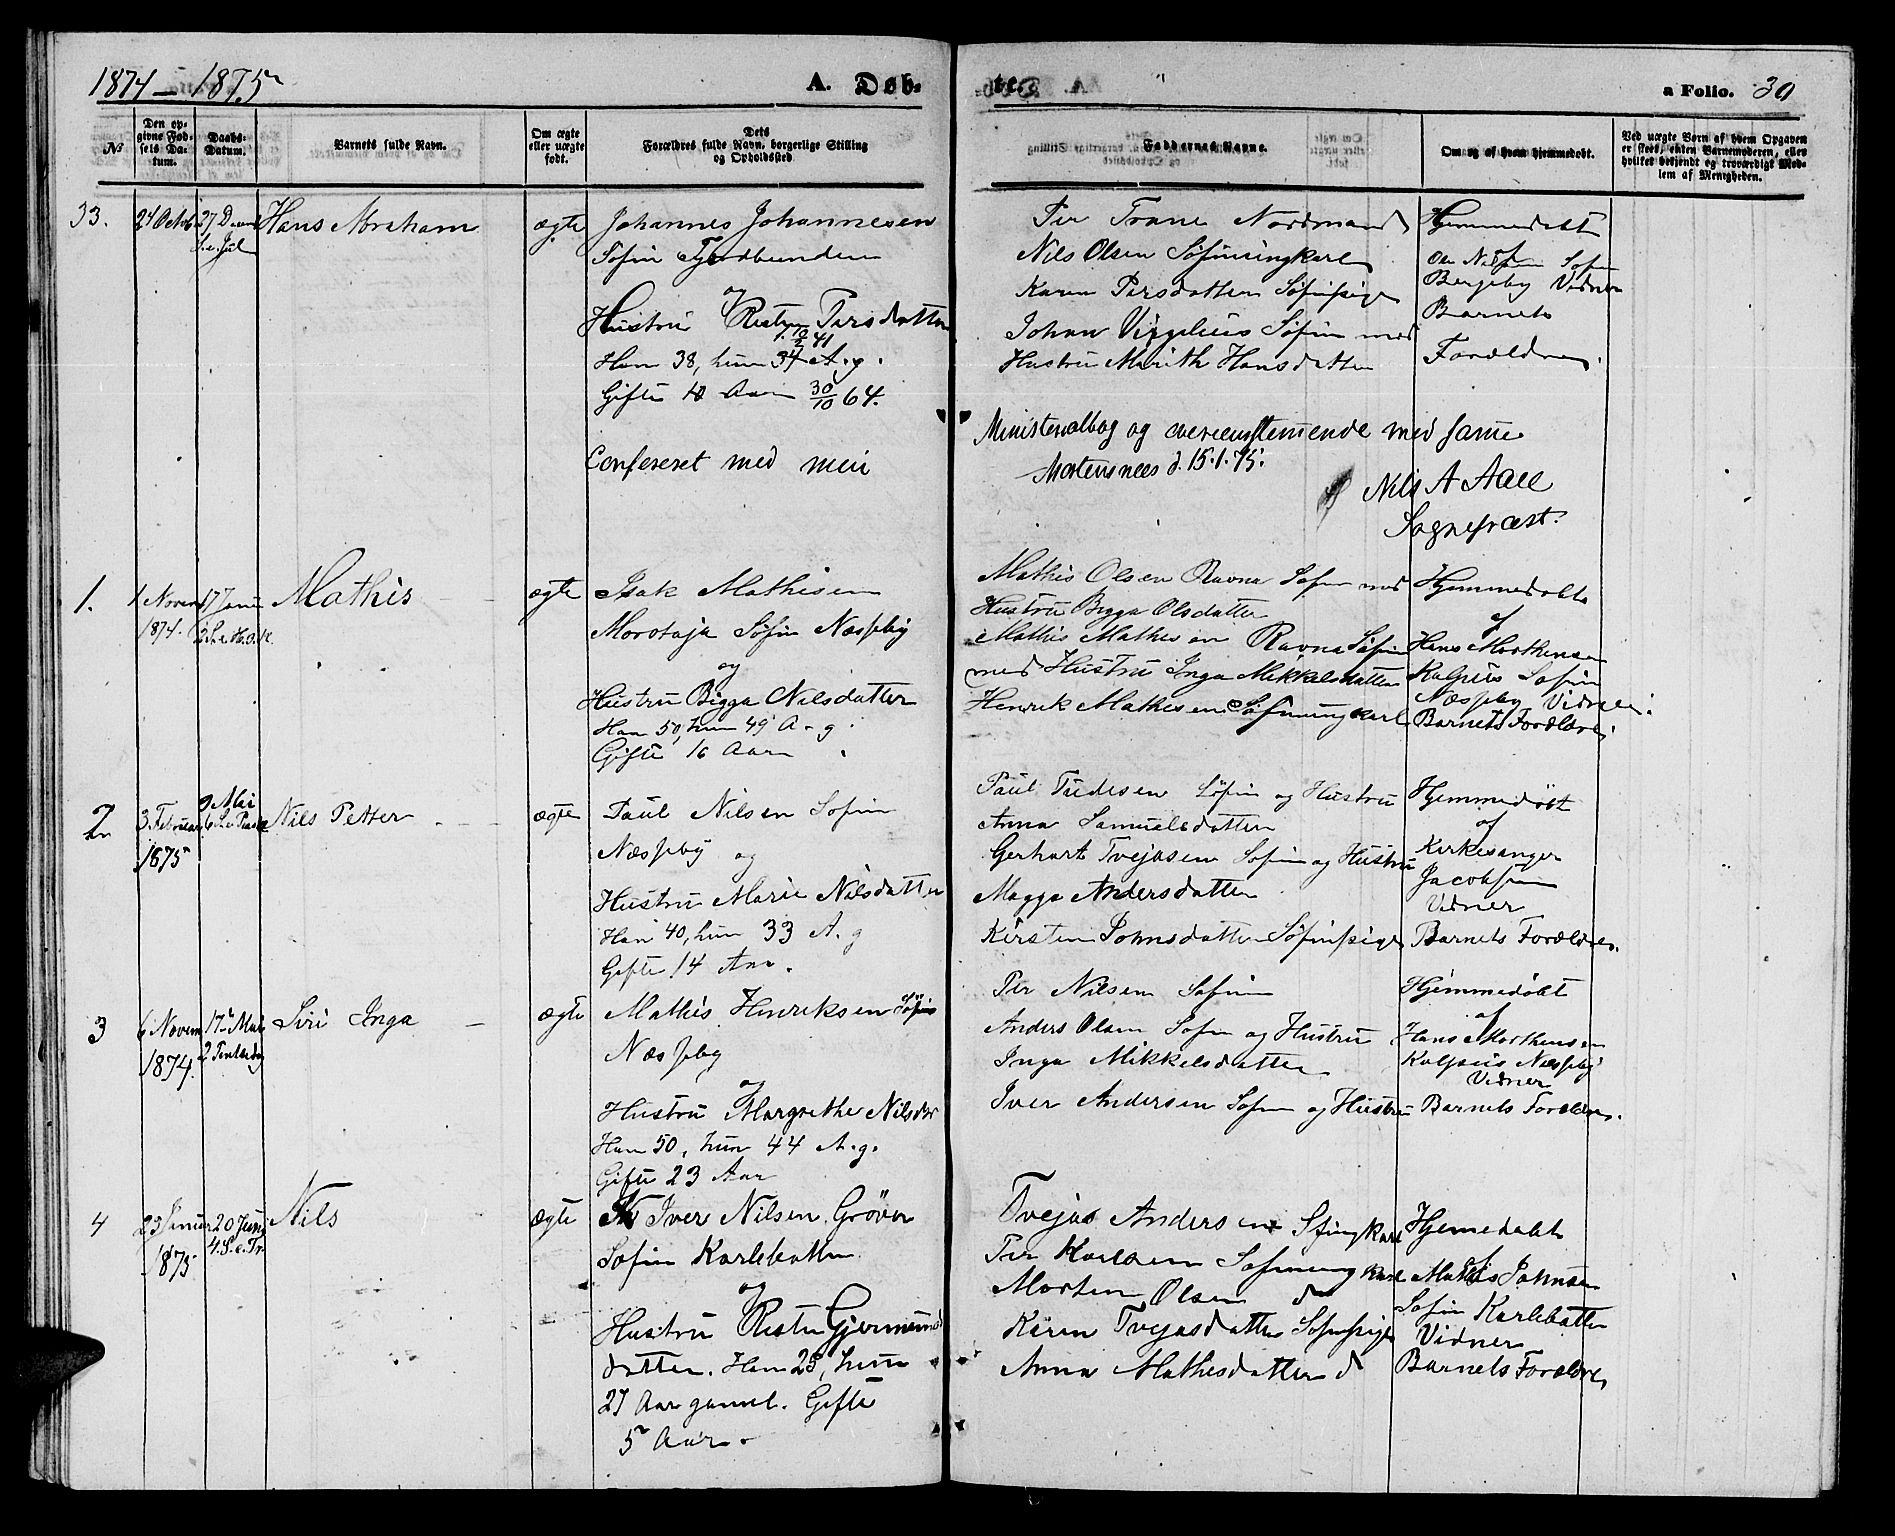 1874 - 1875
A. Døb-
te.
a Folio. 30
№
Den op-
givne Fød-
sels Da-
tum.
Daabs-
Datum.
Barnets fulde Navn.
Om ægte
eller uægte
født.
Dets
Forældres fulde Navn, borgerlige Stilling
og Opholdssted.
Faddernes Navne.
Om og af hvem hjemmedøbt.
Ved uægte Børn af hvem Opgaven
er skeet, enten Barnemoderen, eller
hvilket bekjendt og troværdigt Med-
lem af Menigheden.
33.
24 Octob
27 Decem
S. e. Jul
Hans Abraham
ægte
Johannes Johannesen
Søfin
og
Hustru Persdatter
Han 38, hun 34 A. g.
Gifte 10 Aar 30/10 64.
Per Trane Nordmand
Nils Olsen Søfinungkarl
Karen Persdatter Søfinpige
Johan Virgelius Søfin med
Hustru Marith Hansdatter
Hjemmedøbt
Bergeby Vidner
Barnets
Forældre.
Confereret med min
Ministerialbog og overensstemmende med samme
Mortensnees d. 15.1.75.
Nils A Aall
Sognepræst.
1.
1 Novem
1874.
17 Janu
2 S. e. H. 3 K.
Mathis
ægte
Isak Mathisen
Morotaja Søfin Næsseby
og
Hustru Bigga Nilsdatter
Han 50, hun 49 A. g.
Gifte 16 Aar
Mathis Olsen Ravna Søfin med
Hustru Bigga Olsdatter
Mathis Mathisen Ravna Søfin
med Hustru Inga Mikkelsdatter
Henrik Mathisen Søfinungkarl
Hjemmedøbt
af
Hans Morthensen
Søfin
Næsseby Vidner
Barnets Forældre.
2
3 Februar
1875
9 Mai
6 S. e. Paaske
Nils Petter
ægte
Paul Nilsen Søfin
Næsseby og
Hustru Marie Nilsdatter
Han 40, hun 33 A. g
Gifte 14 Aar.
Paul Tudesen Søfin og Hustru
Anna Samuelsdatter
Gerhart Tvejasen Søfin og Hustru
Magga Andersdatter
Kirsten Johnsdatter Søfinpige
Hjemmedøbt
af
Kirkesanger
Jacobsen
Vidner
Barnets Forældre.
3
6 Novem
1874.
17 Mai
2 Pintsedag
Siri Inga
ægte
Mathis Henriksen Søfin
Næsseby
og
Hustru Margrethe Nilsdtr
Han 50, hun 44 A. g.
Gifte 23 Aar
Per Nilsen Søfin
Anders Olsen Søfin og Hustru
Inga Mikkelsdatter
Iver Andersen Søfin og Hustru
Hjemmedøbt
af
Hans Morthensen
Næsseby
Vidner
Barnets Forældre.
4
23 Januar
1875
20 Juni
4. S. e. Tr.
Nils
ægte
Iver Nilsen Grøver
Søfin Karlebotten
og
Hustru Gjermund
datter. Han 25, hun
27 Aar gamel. Gifte
5 Aar.
Tvejas Andersen Sfinungkarl
Per Karlsen Søfinungkarl
Morten Olsen do
Karen Tvejasdatter Søfinpige
Anna Mathisdatter d
Hjemedøbt
af
Mathis Johnsen
Søfin Karlebotten
Vidner
Barnets Forældre.